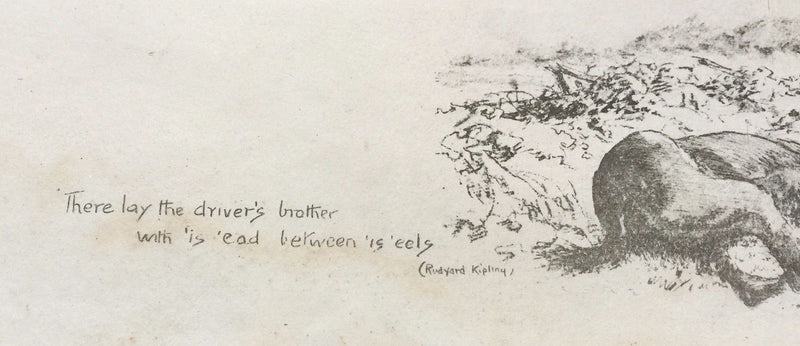 There lay the driver's brother
with 'is 'ead between 'is 'eels
(Rudyard Kipling)